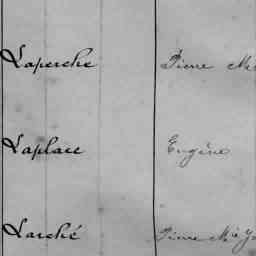 Laperche Pierre
Laplace Eugène
Larché Pierre Mie